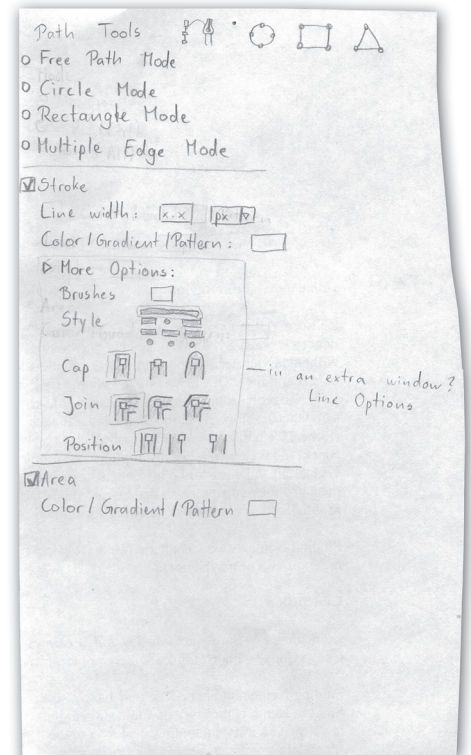 Path Tools
Free Path Mode
Circle Mode
Rectangle Mode
Multiple Edge Mode
Stroke
Line width: x.x px
Color/Gradient/Pattern:
More Options:
Brushes
Style
Cap
—in an extra window?
Line Options
Join
Position
Area
Color/Gradient/Pattern